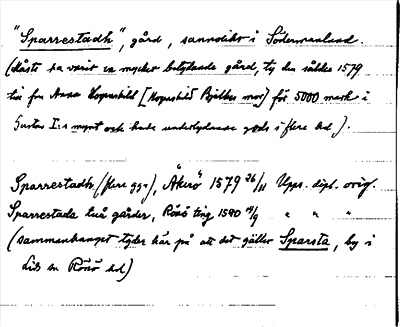 "Sparrestadh", gård, sannolikt i Södermanland.
(Måste ha varit en mycket betydande gård, ty den såldes 1579
till fru Anna Hogenskild [Hogenskild Bjelkes mor] för 5000 mark i
Gustav I:s mynt och hade underlydande gods i flere hd).
Sparrestadh (flere ggr), "Åkerö" 1579 26/11 Upps. dipl. orig.
Sparrestada två gårder, Rönö ting 1590 14/9 " " "
(sammanhanget tyder här på att det gäller Sparsta, by i
Lids sn Rönö hd)